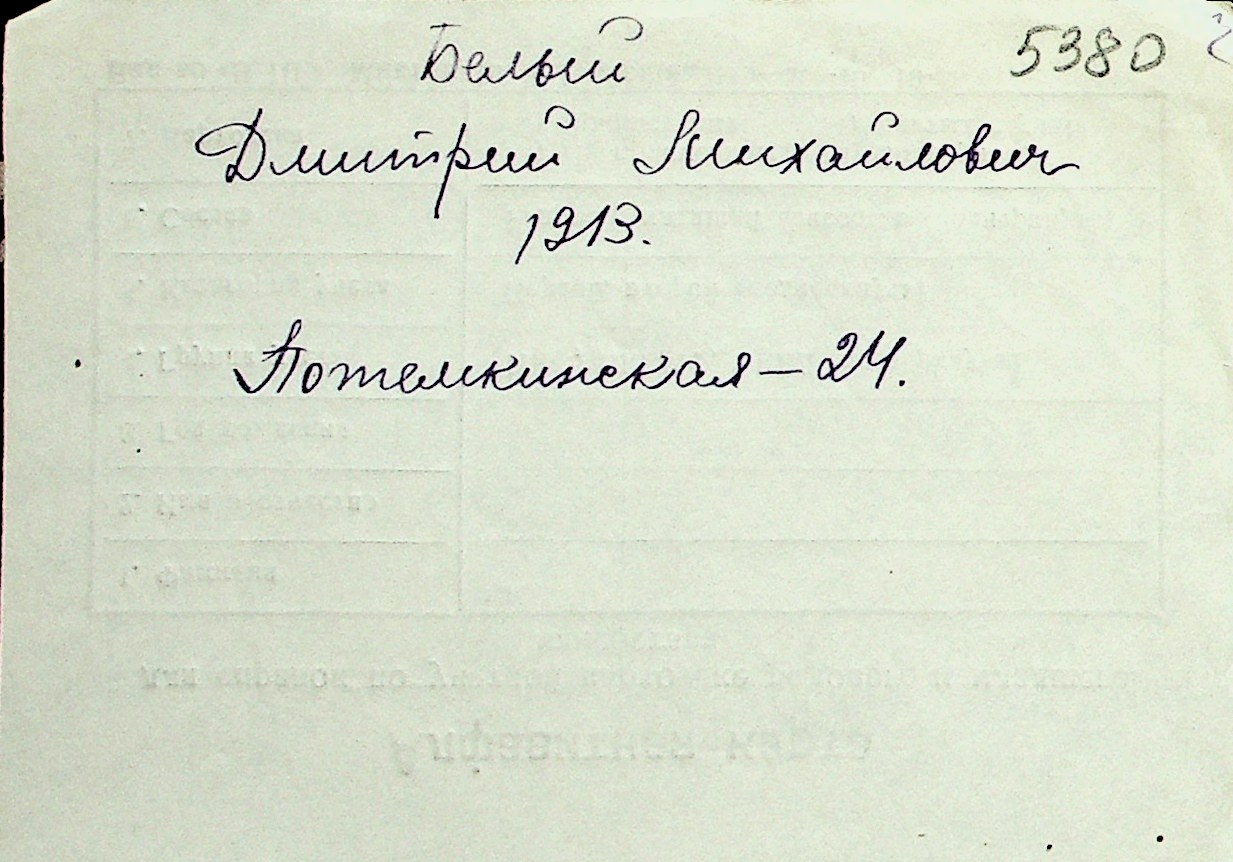 5380
Белый
Дмитрий Михайлович
1913.
Потемкинская – 24.